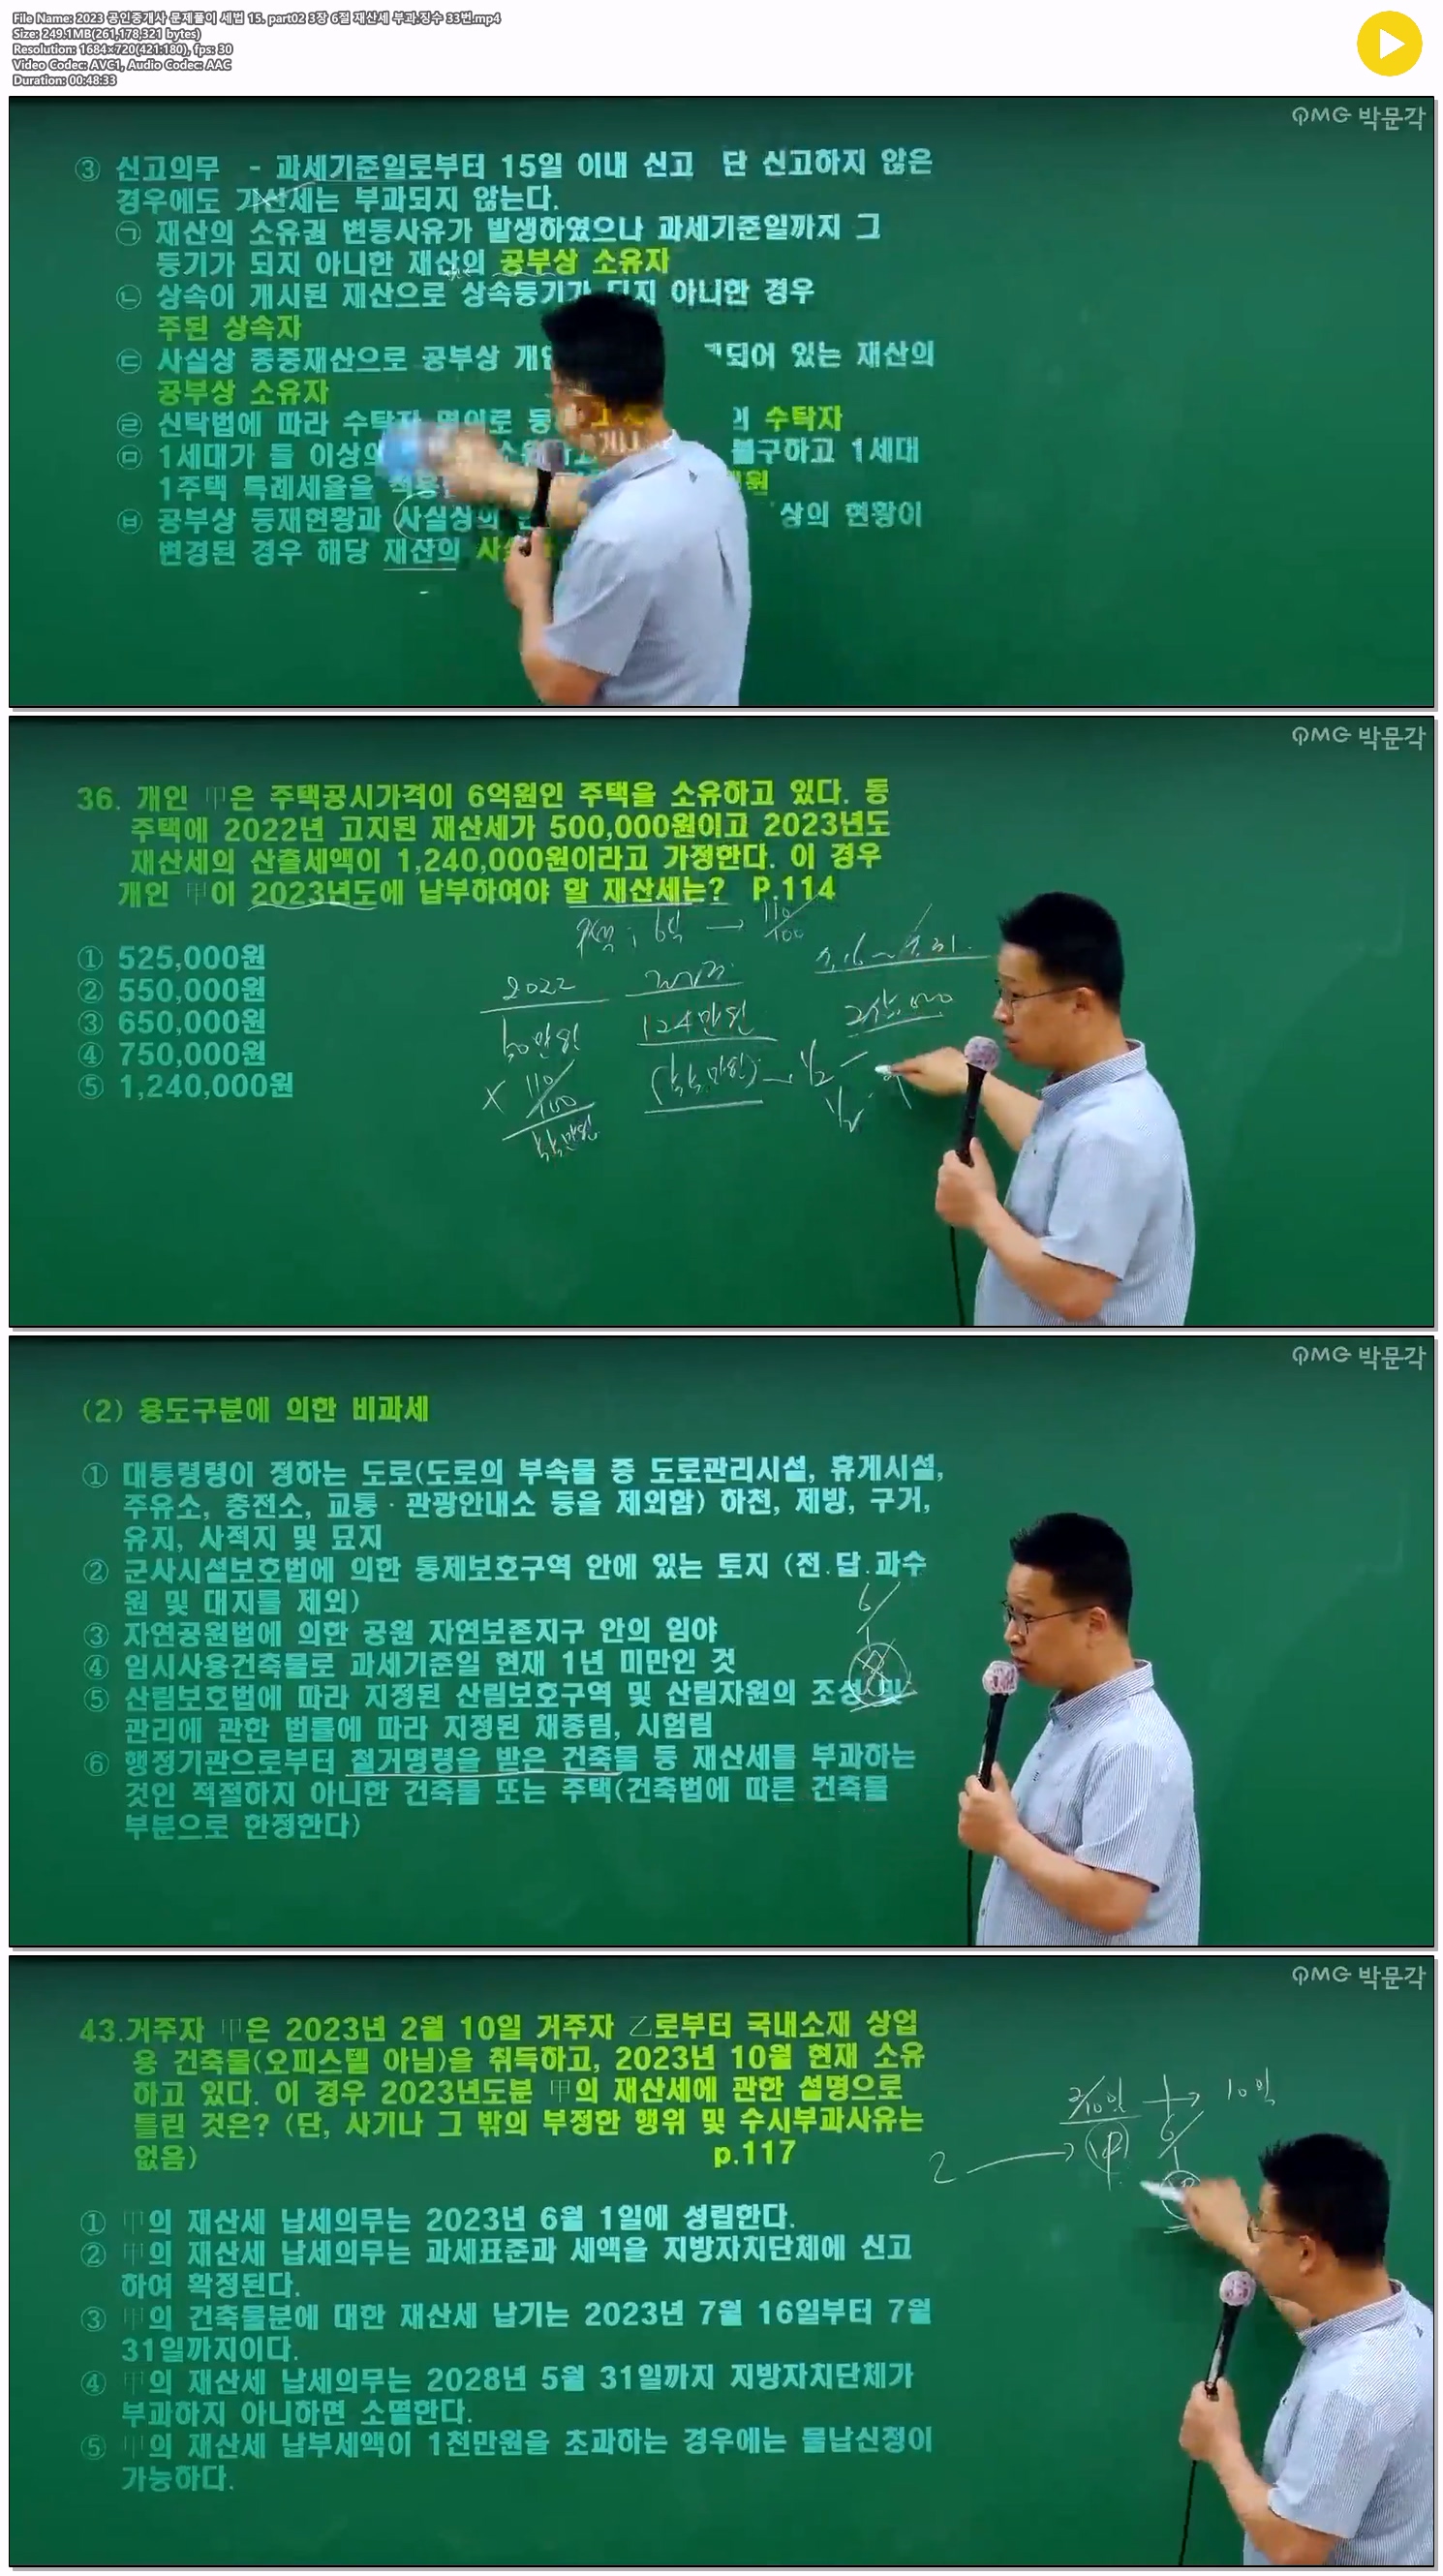 File Name: 2023 공인중개사 문제풀이 세법 15. part02 3장 6절 재산세 부과.징수 33번.mp4
Size: 249.1MB(261,178,321 bytes)
Resolution: 1684×720(421:180), fps: 30
Video Codec: AVC1, Audio Codec: AAC
Duration: 00:48:33
QMG 박문각
③ 신고의무 - 과세기준일로부터 15일 이내 신고 단 신고하지 않은
경우에도 가산세는 부과되지 않는다.
㉠ 재산의 소유권 변동사유가 발생하였으나 과세기준일까지 그
등기가 되지 아니한 재산의 공부상 소유자
㉡ 상속이 개시된 재산으로 상속등기가 되지 아니한 경우
주된 상속자
㉢ 사실상 종중재산으로 공부상 개인 되어 있는 재산의
공부상 소유자
㉣ 신탁법에 따라 수탁자 명의로 수탁자
㉤ 1세대가 둘 이상의 불구하고 1세대
1주택 특례세율을
㉥ 공부상 등재현황과 사실상의 상의 현황이
변경된 경우 해당 재산의
QMG 박문각
36. 개인 甲은 주택공시가격이 6억원인 주택을 소유하고 있다. 동
주택에 2022년 고지된 재산세가 500,000원이고 2023년도
재산세의 산출세액이 1,240,000원이라고 가정한다. 이 경우
개인 甲이 2023년도에 납부하여야 할 재산세는? P.114
6억 → 110/100
① 525,000원
② 550,000원
③ 650,000원
④ 750,000원
⑤ 1,240,000원
2022
50만원 124만원
× 110/100 (55만원) → 1/2
55만원 1/2
QMG 박문각
(2) 용도구분에 의한 비과세
① 대통령령이 정하는 도로(도로의 부속물 중 도로관리시설, 휴게시설,
주유소, 충전소, 교통·관광안내소 등을 제외함) 하천, 제방, 구거,
유지, 사적지 및 묘지
② 군사시설보호법에 의한 통제보호구역 안에 있는 토지 (전.답.과수
원 및 대지를 제외)
③ 자연공원법에 의한 공원 자연보존지구 안의 임야
④ 임시사용건축물로 과세기준일 현재 1년 미만인 것
⑤ 산림보호법에 따라 지정된 산림보호구역 및 산림자원의 조성 및
관리에 관한 법률에 따라 지정된 채종림, 시험림
⑥ 행정기관으로부터 철거명령을 받은 건축물 등 재산세를 부과하는
것인 적절하지 아니한 건축물 또는 주택(건축법에 따른 건축물
부분으로 한정한다)
6/1
QMG 박문각
43.거주자 甲은 2023년 2월 10일 거주자 乙로부터 국내소재 상업
용 건축물(오피스텔 아님)을 취득하고, 2023년 10월 현재 소유
하고 있다. 이 경우 2023년도분 甲의 재산세에 관한 설명으로
틀린 것은? (단, 사기나 그 밖의 부정한 행위 및 수시부과사유는
없음) p.117
① 甲의 재산세 납세의무는 2023년 6월 1일에 성립한다.
② 甲의 재산세 납세의무는 과세표준과 세액을 지방자치단체에 신고
하여 확정된다.
③ 甲의 건축물분에 대한 재산세 납기는 2023년 7월 16일부터 7월
31일까지이다.
④ 甲의 재산세 납세의무는 2028년 5월 31일까지 지방자치단체가
부과하지 아니하면 소멸한다.
⑤ 甲의 재산세 납부세액이 1천만원을 초과하는 경우에는 물납신청이
가능하다.